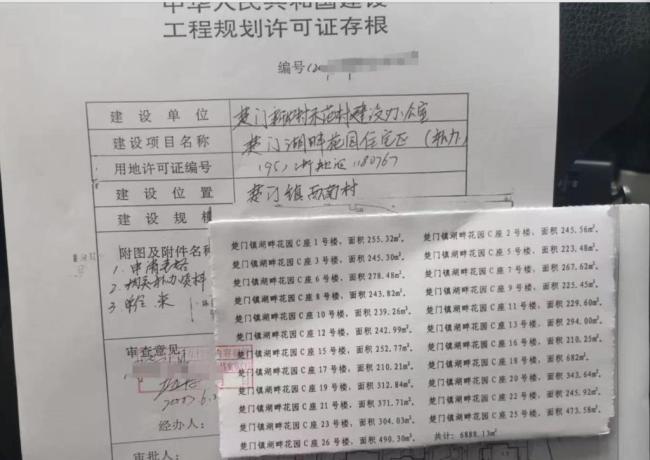 中华人民共和国建设
工程规划许可证存根
编号(2
建设单位 楚门新农村示范村建设办公室
建设项目名称 楚门湖畔花园住宅区(补办)
用地许可证编号 (95)浙地证1180767
建设位置 楚门镇西南村
建设规模
附图及附件名称
1. 申请表格
2. 相关补办资料
3.
审查意见:
经办人:
审批人:
楚门镇湖畔花园C座1号楼，面积255.32m²，
楚门镇湖畔花园C座3号楼，面积245.30m²，
楚门镇湖畔花园C座6号楼，面积278.48m²，
楚门镇湖畔花园C座8号楼，面积243.82m²，
楚门镇湖畔花园C座10号楼，面积239.26m²，
楚门镇湖畔花园C座12号楼，面积242.99m²，
楚门镇湖畔花园C座15号楼，面积252.77m²，
楚门镇湖畔花园C座17号楼，面积210.21m²，
楚门镇湖畔花园C座19号楼，面积312.84m²，
楚门镇湖畔花园C座21号楼，面积371.71m²，
楚门镇湖畔花园C座23号楼，面积304.03m²，
楚门镇湖畔花园C座26号楼，面积490.30m²，
楚门镇湖畔花园C座2号楼，面积245.56m²，
楚门镇湖畔花园C座5号楼，面积223.48m²，
楚门镇湖畔花园C座7号楼，面积267.62m²，
楚门镇湖畔花园C座9号楼，面积225.45m²，
楚门镇湖畔花园C座11号楼，面积229.60m²，
楚门镇湖畔花园C座13号楼，面积294.00m²，
楚门镇湖畔花园C座16号楼，面积210.25m²，
楚门镇湖畔花园C座18号楼，面积682m²，
楚门镇湖畔花园C座20号楼，面积343.64m²，
楚门镇湖畔花园C座22号楼，面积245.92m²，
楚门镇湖畔花园C座25号楼，面积473.58m²，
共计：6888.13m²